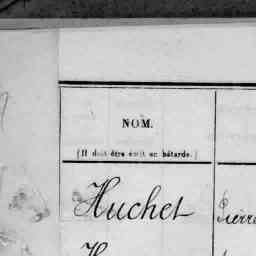 NOM.
(Il doit être écrit en bâtarde.)
Huchet Pierre